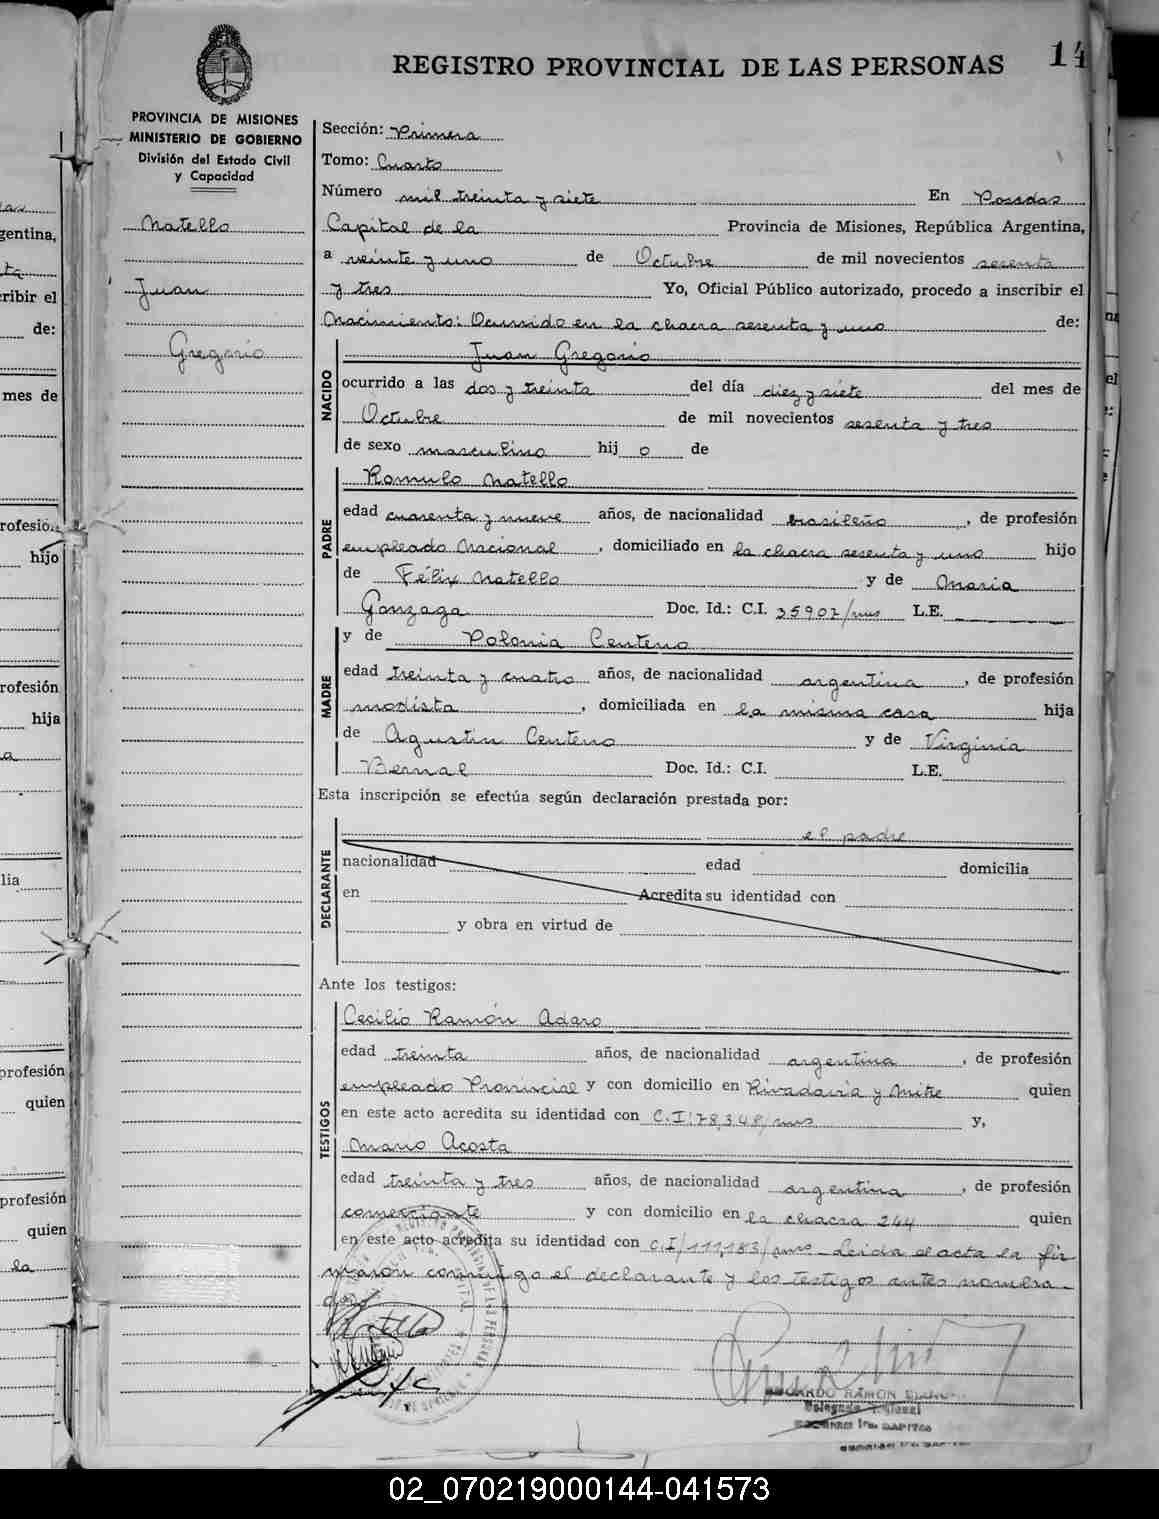 REGISTRO PROVINCIAL DE LAS PERSONAS
14
PROVINCIA DE MISIONES
MINISTERIO DE GOBIERNO
División del Estado Civil
y Capacidad
Natello
Juan
Gregorio
Sección: Primera
Tomo: Cuarto
Número mil treinta y siete En Posadas
Capital de la Provincia de Misiones, República Argentina,
a veinte y uno de Octubre de mil novecientos sesenta
y tres Yo, Oficial Público autorizado, procedo a inscribir el
Nacimiento: Ocurrido en la chacra sesenta y uno de:
NACIDO
Juan Gregorio
ocurrido a las dos y treinta del día diez y siete del mes de
Octubre de mil novecientos sesenta y tres
de sexo masculino hij o de
PADRE
Romulo Natello
edad cuarenta y nueve años, de nacionalidad brasileño, de profesión
empleado Nacional, domiciliado en la chacra sesenta y uno hijo
de Félix Natello y de Maria
Gonzaga Doc. Id.: C.I. 35902/mus L.E.
MADRE
y de Polonia Centeno
edad treinta y cuatro años, de nacionalidad argentina, de profesión
modista, domiciliada en la misma casa hija
de Agustin Centeno y de Virginia
Bernal Doc. Id.: C.I. L.E.
Esta inscripción se efectúa según declaración prestada por:
DECLARANTE
el padre
nacionalidad edad domicilia
en Acredita su identidad con
y obra en virtud de
Ante los testigos:
TESTIGOS
Cecilio Ramón Adaro
edad treinta años, de nacionalidad argentina, de profesión
empleado Provincial y con domicilio en Rivadavia y Mitre quien
en este acto acredita su identidad con C.I/78,348/mus y,
Mario Acosta
edad treinta y tres años, de nacionalidad argentina, de profesión
comerciante y con domicilio en la chacra 244 quien
en este acto acredita su identidad con C.I/111,183/mus_Leida el acta la fir
maron conmigo el declarante y los testigos antes nombra_
dos
EDUARDO RAMON
02_070219000144-041573